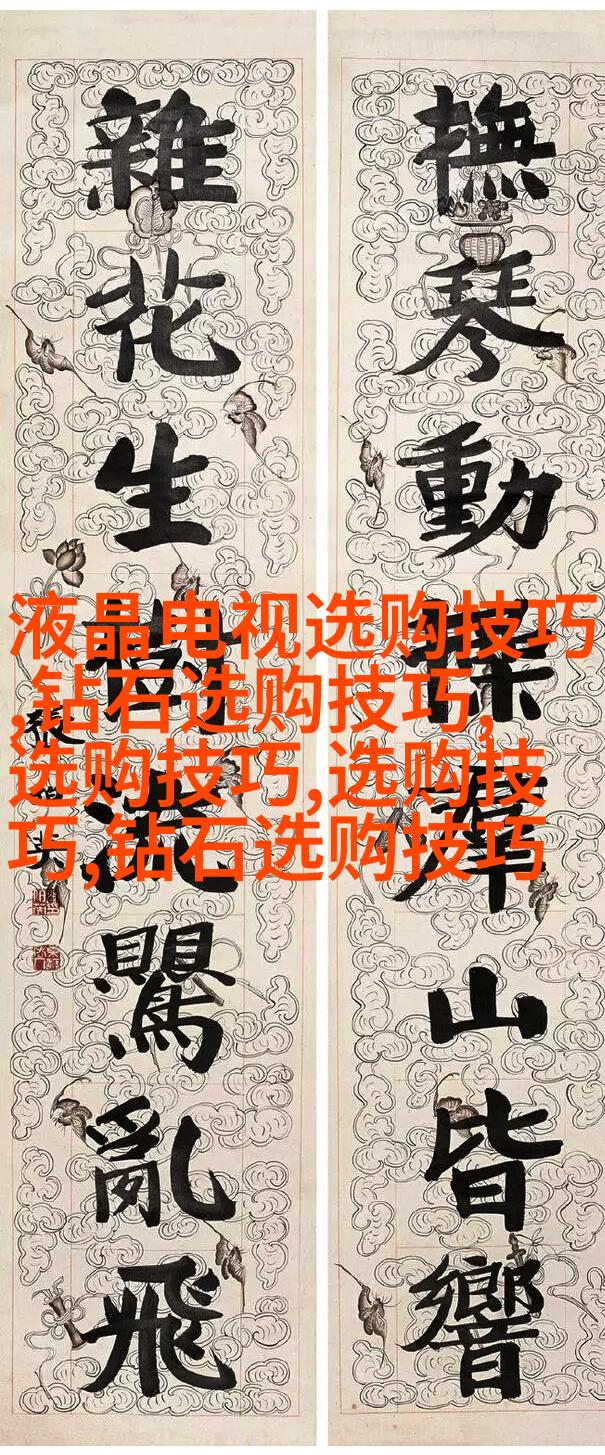 撫琴動操羣山皆響
雜花生樹流鸎亂飛
液晶电视选购技巧
,钻石选购技巧,
选购技巧,选购技
巧,钻石选购技巧